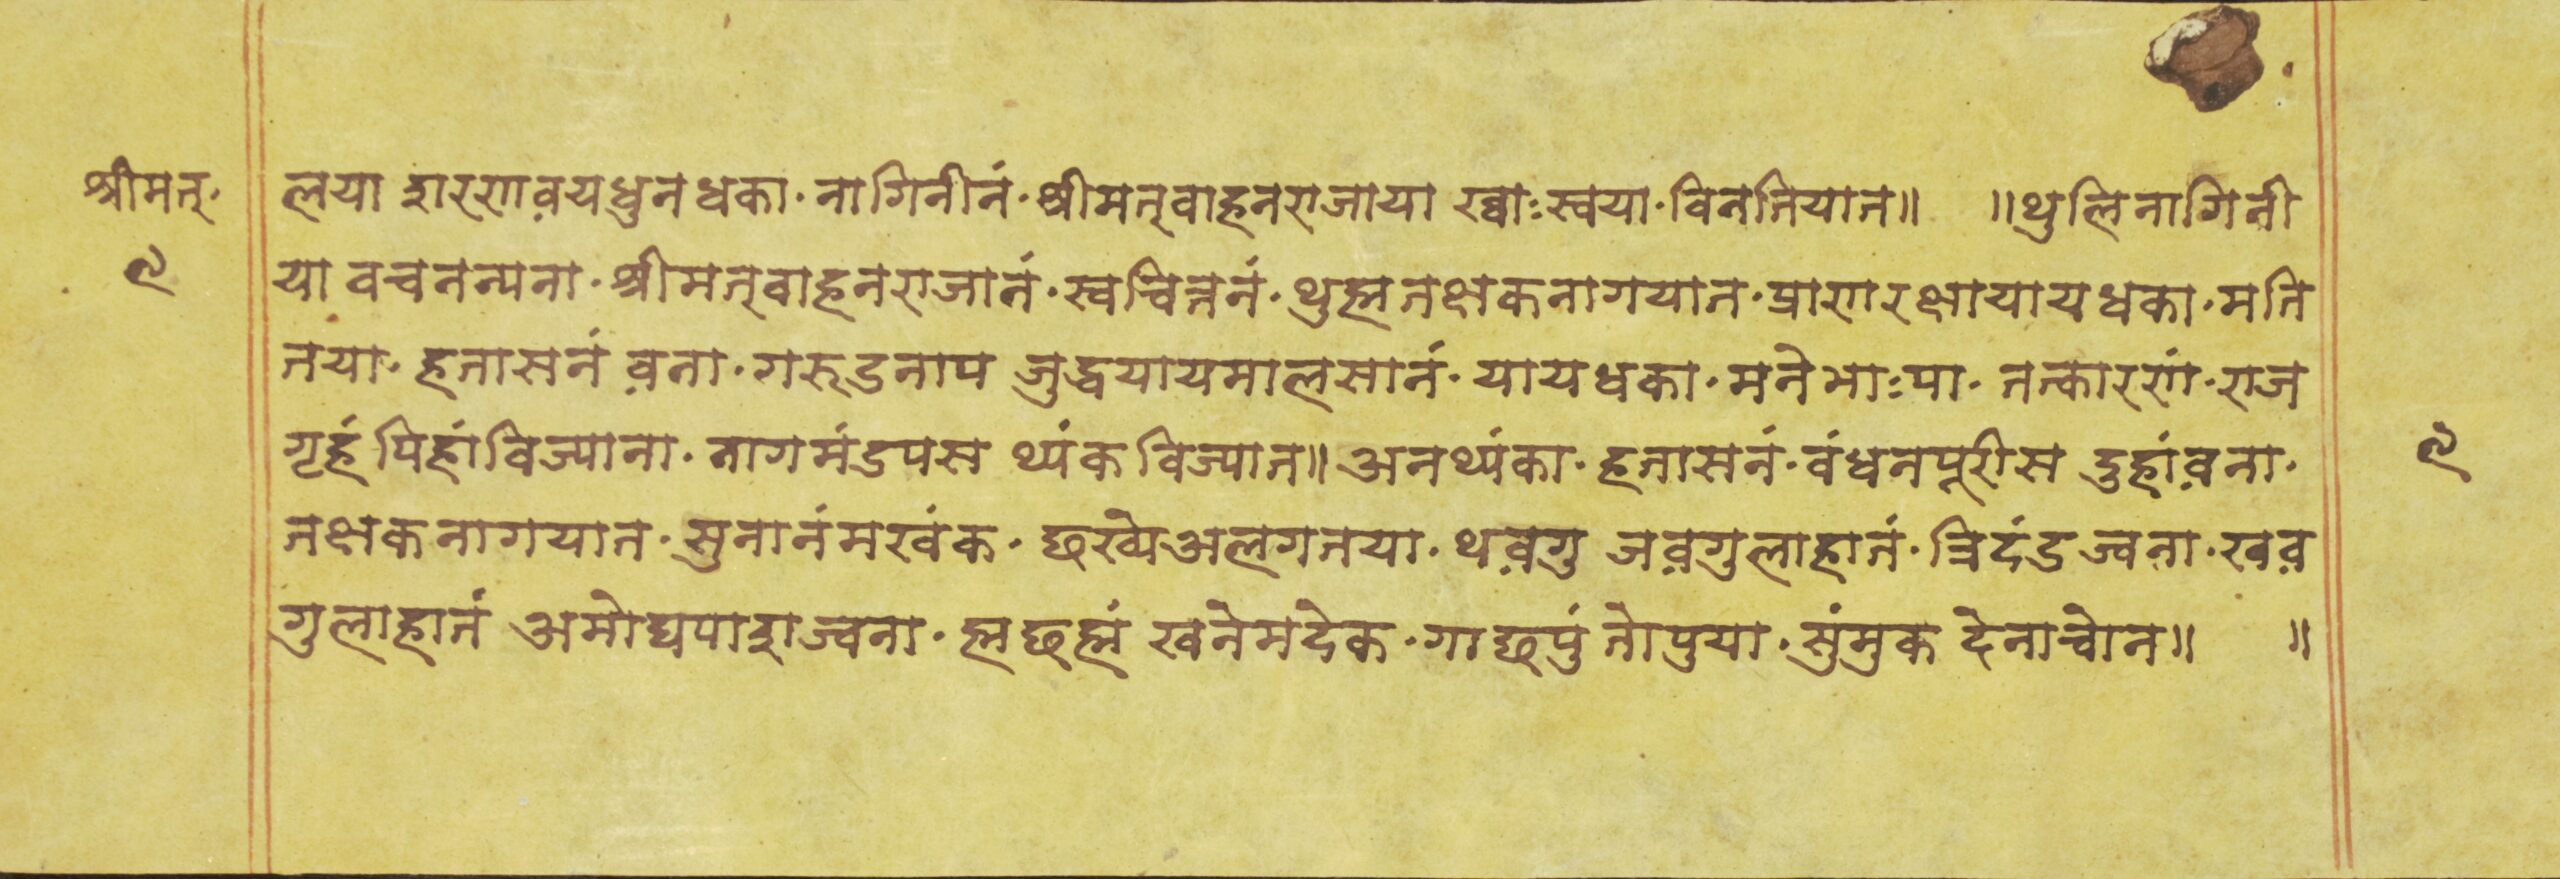 श्रीमत्·
९
लया शरणव़यधुनधका·नागिनीनं·श्रीमत्वाहनराजाया ख्वाःस्वया·विनतियात॥ ॥थुलिनागिनी
या वचनन्यना·श्रीमत्वाहनराजानं·स्वचित्तनं·थुह्मतक्षकनागयात·प्राणरक्षायायधका·मति
तया·हतासनं व़ना·गरूडनाप जुद्धयायमालसानं·यायधका·मनेभाःपा·तत्कारणं·राज
गृहं पिहांविज्याना·नागमंडपस थ्यंकविज्यात॥अनथ्यंका·हतासनं·वंधनपूरीस दुहांव़ना·
तक्षकनागयात·सुनानंमखंक·छखेअलगतया·थव़गु जव़गुलाहातं·त्रिदंडज्वना·खव़
गुलाहातं अमोघपाशज्वना·ह्मछह्मं खनेमदेक·गाछपुं तोपुया·सुंमुक देनाचोन॥ ॥
९